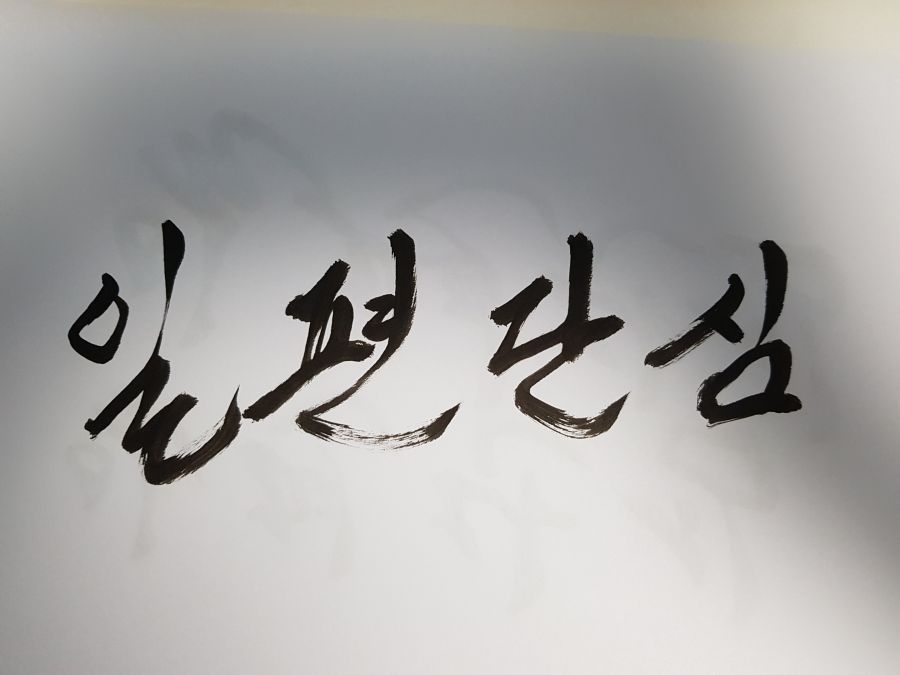 일편단심